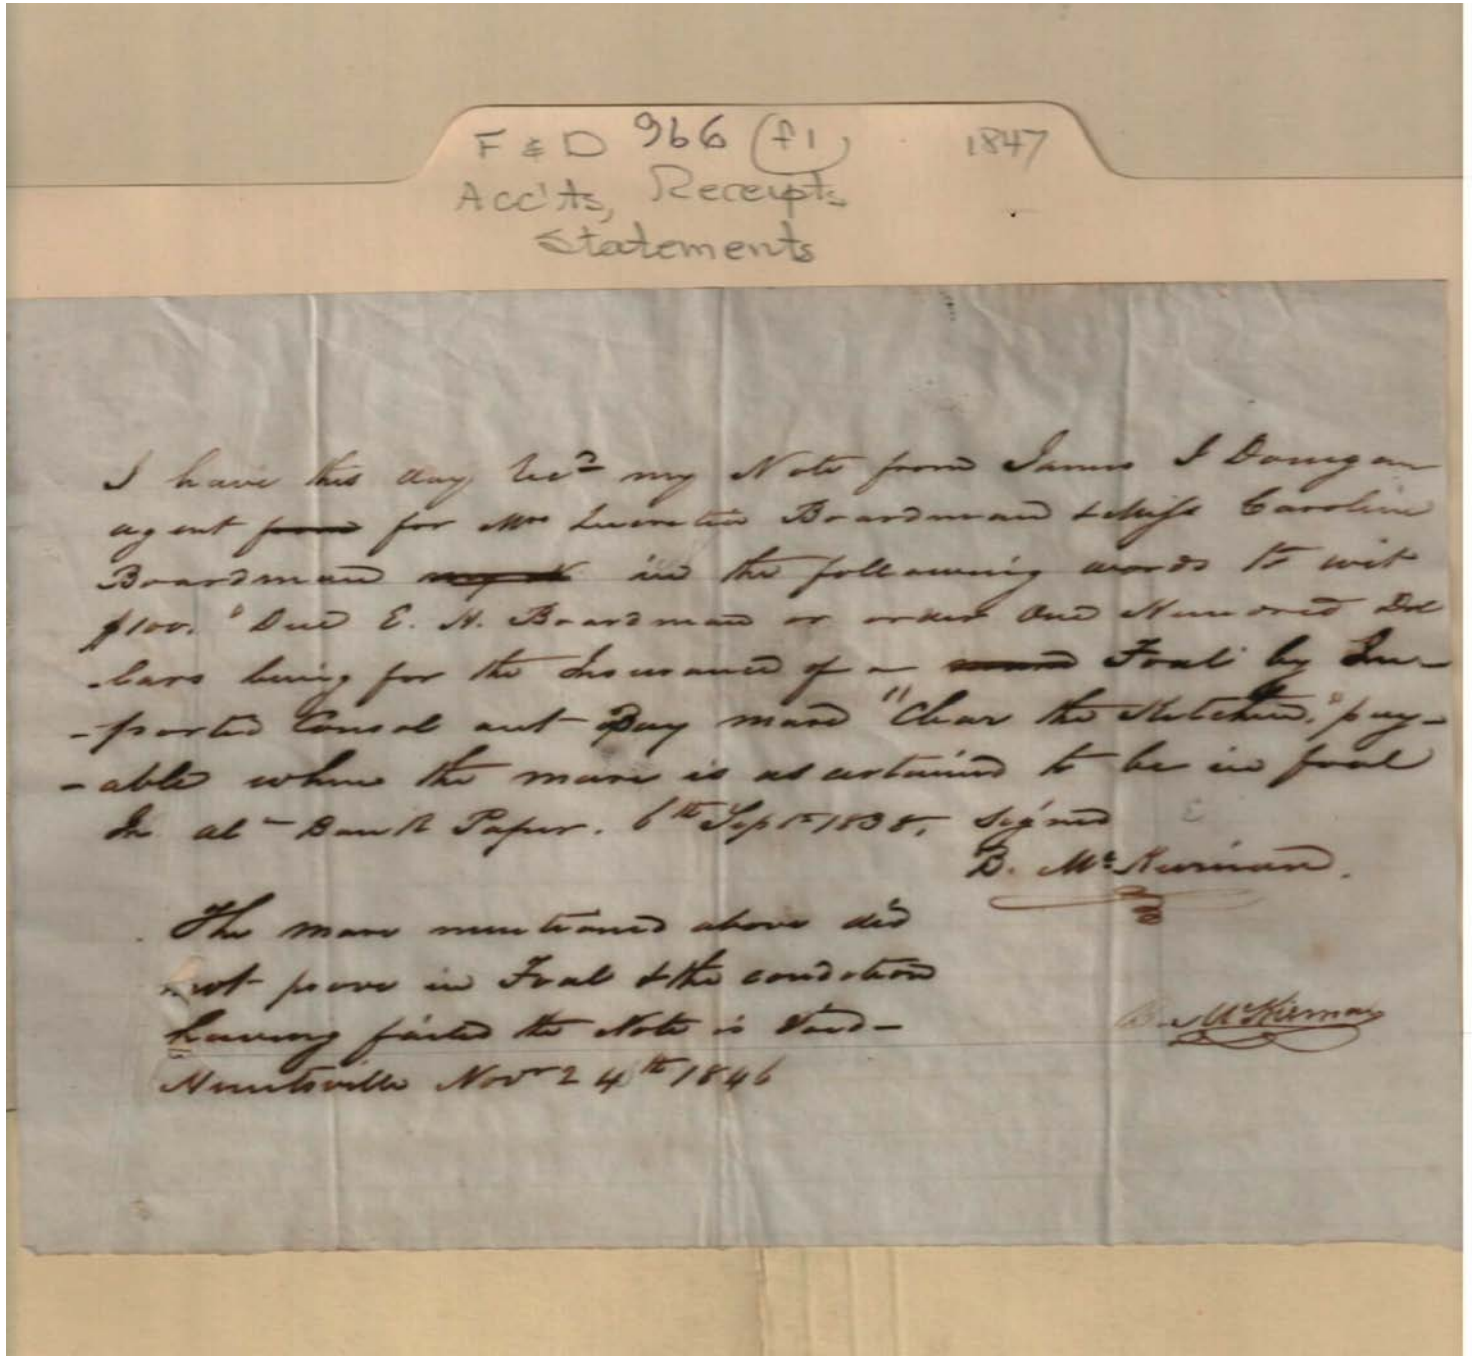 F & D 966 (f1) 1847
Acc'ts, Receipts,
Statements
I have this day Recd my Note from James J Donegan
agent from for Mrs Lucretia Boardman & Miss Caroline
Boardman my N in the following words to wit
$100. "Due E. H. Boardman or order One Hundred Dol
-lars being for the Insurance of a mare Foal by Im-
-ported Consol out Bay mare "Clear the Kitchen," pay-
-able when the mare is ascertained to be in foal
In al- Bank Paper. 6th Sept 1838. signed
B. McKiernan.
The mare mentioned above did
not prove in Foal & the condition
having failed the Note is Void-
Huntsville Novr 24th 1846
B. McKiernan